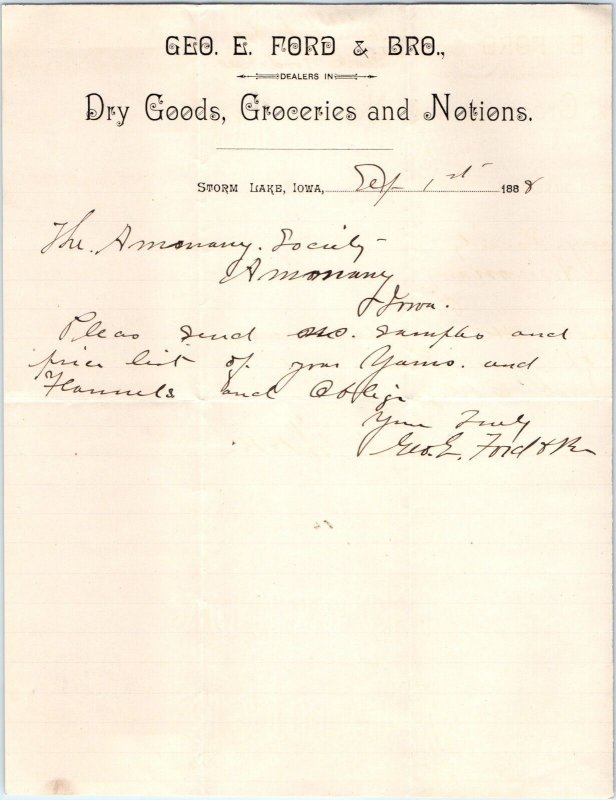 GEO. E. FORD & BRO.,
DEALERS IN
Dry Goods, Groceries and Notions.
STORM LAKE, IOWA, Sept 1st 1888
The. Amonany. Society
Amonany
Iowa.
Pleas send me. samples and
price list of your Yarns. and
Flannels and Oblige
Your Truly
Geo. E. Ford & Bro